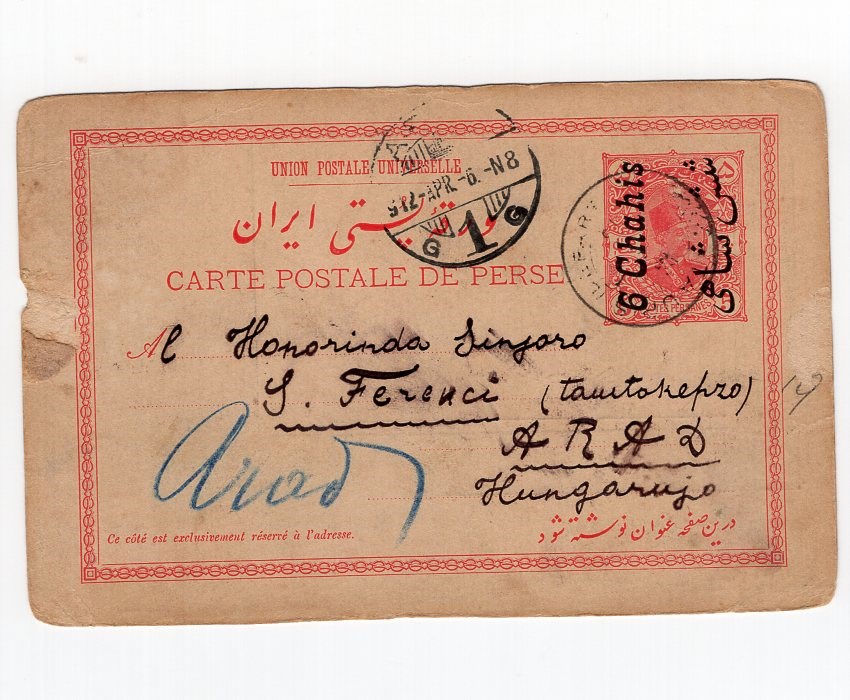 UNION POSTALE UNIVERSELLE
912 APR. -6. -N8
G 1 G
6 Chahis
شش شاهی
کارت پستی ایران
CARTE POSTALE DE PERSE
Al Honorinda Sinjoro
S. Ferenci (tanitokepzo)
ARAD
Hungarujo
Arad
Ce côté est exclusivement réservé à l'adresse.
درین صفحه عنوان نوشته شود